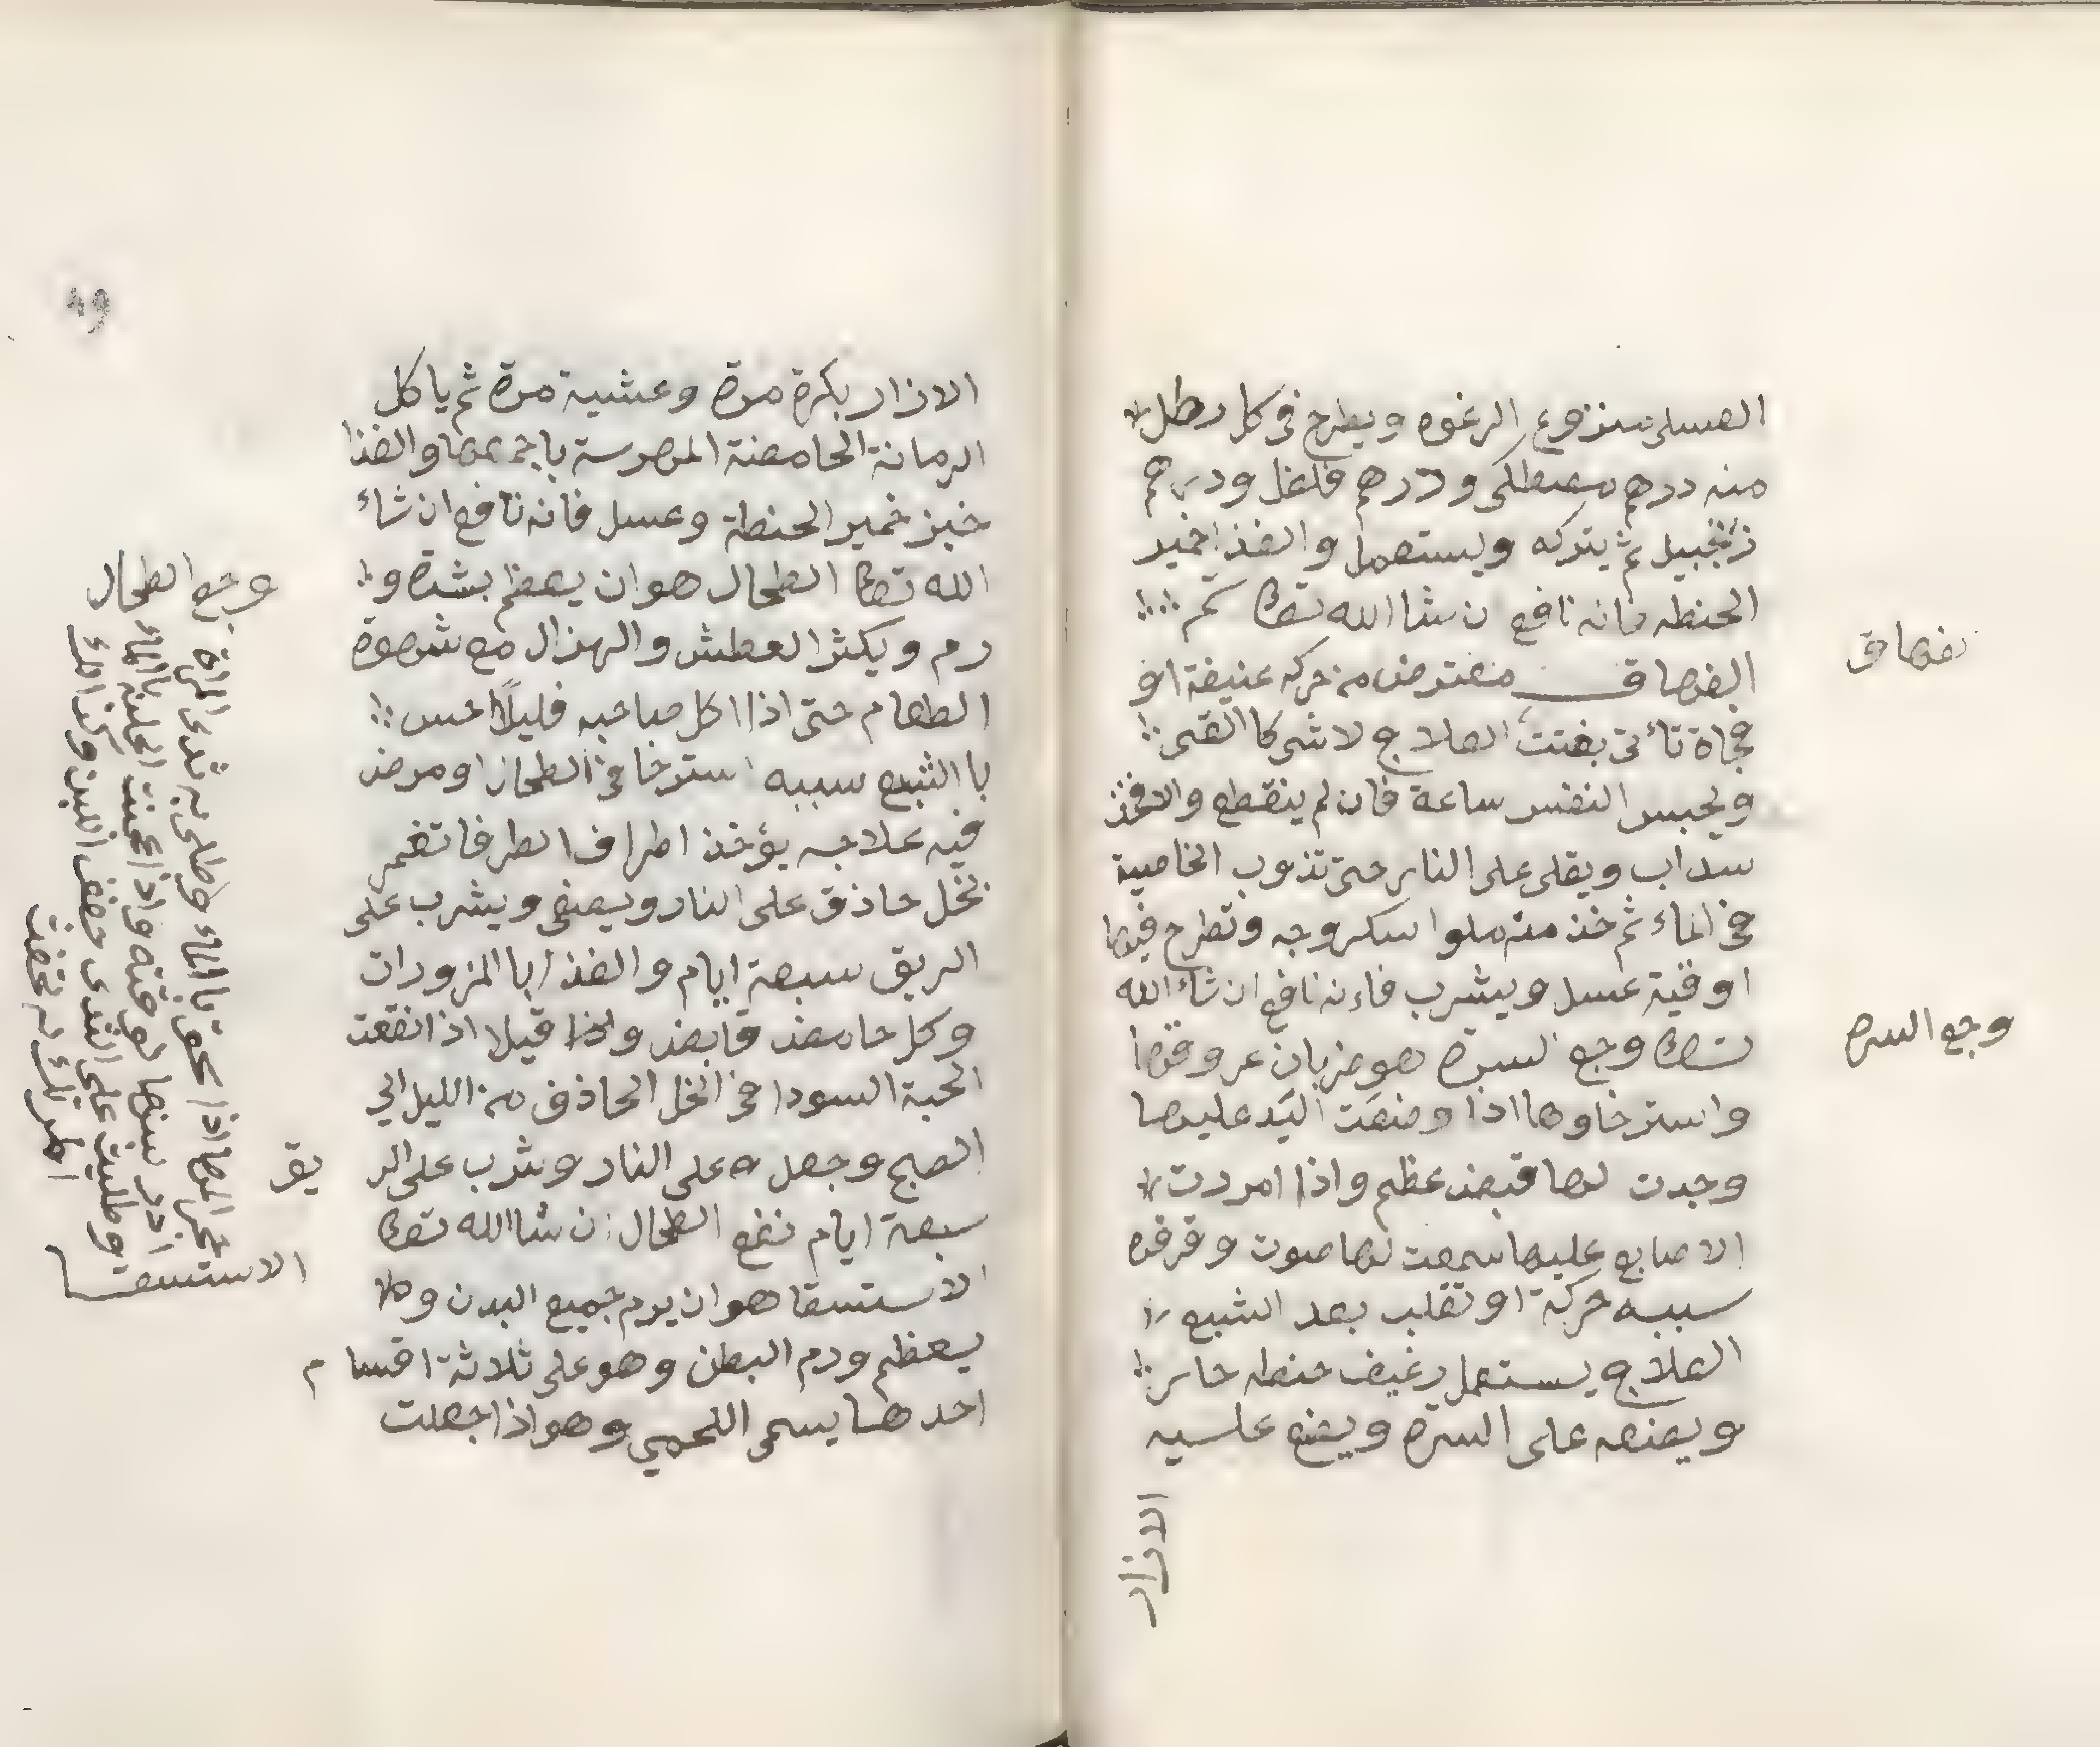 العسل منزوع الرغوه ويطرح فى كل رطل
منه درهم مصطكى ودرهم فلفل ودرهم
زنجبيل ثم يتركه ويستعمل والغذا خمير
الحنطه فانه نافع ان شا الله تعالى تم
الفهاق معترض من حركه عنيفة او
فجاة تأتى بغتت العلاج لا شى كا القى
ويحبس النفس ساعة فان لم ينقطع والا فخذ
سداب ويقلى على النار حتى تذوب الخاصية
فى الماء ثم خذ منه ملوا سكروجه وتطرح فيها
اوقية عسل ويشرب فاءنه نافع ان شاء الله
تعالى وجع السرة هو ضربان عروقها
واسترخاوها اذا وضعت اليد عليها
وجدت لها قبض عظم واذا امردت
الاصابع عليها سمعت لها صوت وقرقره
سببه حركة او تقلب بعد الشبع
العلاج يستعمل رغيف حنطه حار
ويضعه على السرة ويضع عليه
الازار
فهاق
وجع السره
49
الازار بكرة مرة وعشية مرة ثم ياكل
الرمانة الحامضة المهرسة باجمعها والغذا
خبز خمير الحنطة وعسل فانه نافع ان شاء
الله تعالى الطحال هو ان يعظم بشدة و
رم ويكثر العطش والهزال مع شهوة
الطعام حتى اذا اكل صاحبه قليلًا حس
با الشبع سببه استرخا فى الطحال او مرض
فيه علاجه يؤخذ اطراف الطرفا تغمر
بخل حاذق على النار ويصفى ويشرب على
الريق سبعة ايام والغذا با المزورات
وكل حامض قابض واذا قيلا اذا انقعت
الحبة السودا فى الخل الحاذق من الليل الي
الصبح وجعله على النار وشرب على الر
يق
سبعة ايام نفع الطحال ان شا الله تعالى
الاستسقا هو ان يرم جميع البدن ولا
يعظم ورم البطن وهو على ثلاثة اقسام
احدها يسمى اللحمي وهو اذا جعلت
وجع الطحال
حجر المها اذا سحق با الماء وطلى به ثدى المراة
ادر لبنها لوقته واذا عجنت الحلبه بالماء
وطليت على الثدى خفف اللبن وكذالك
الاستسقا